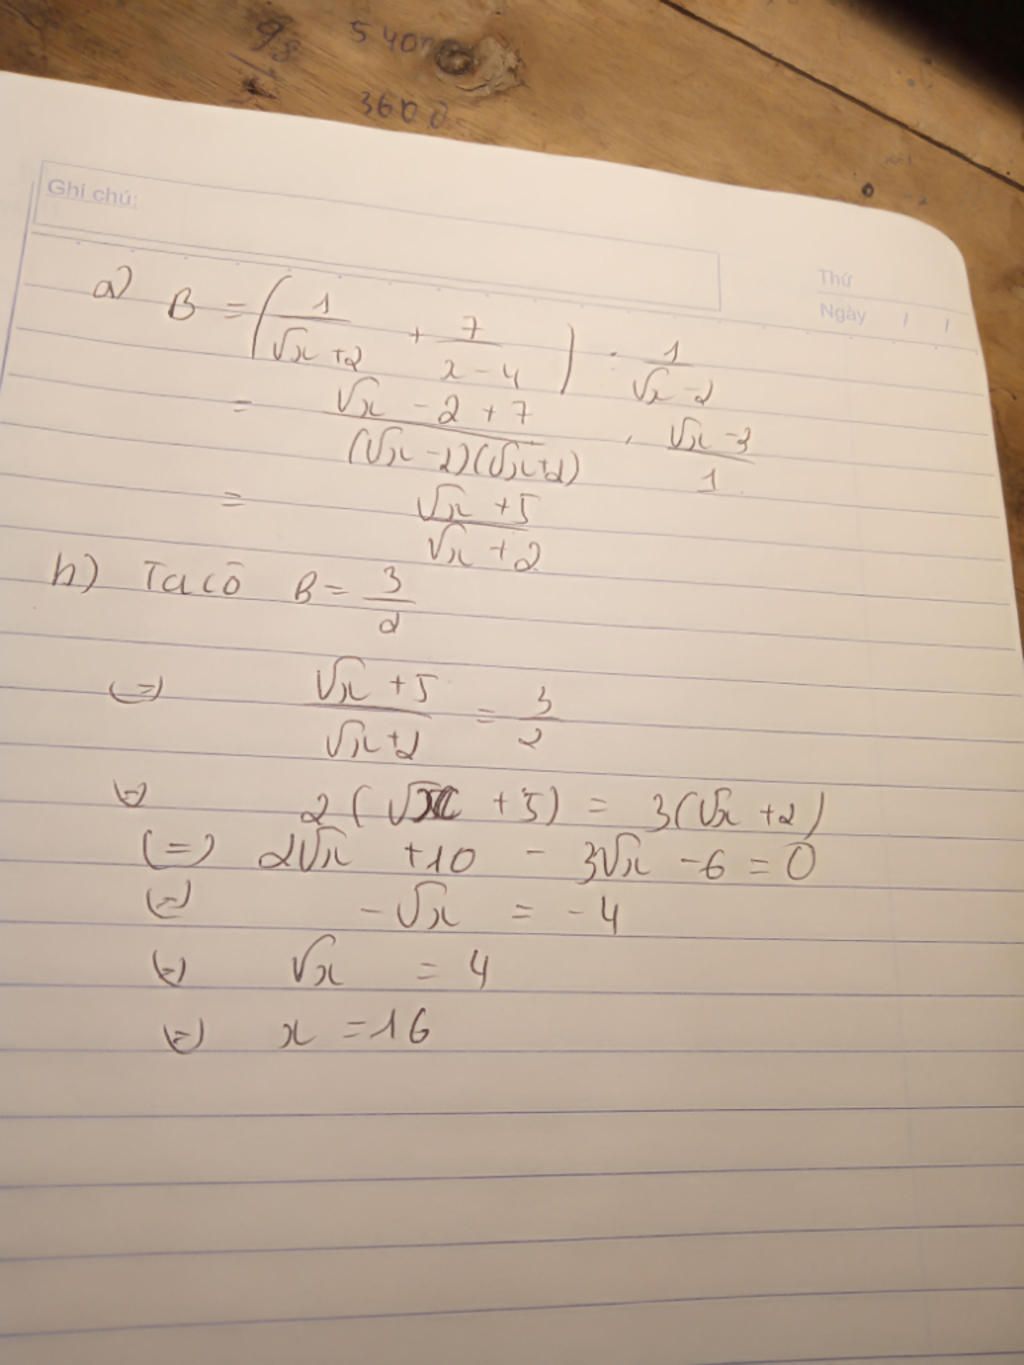 98 5400
3600
Ghi chú:
Thứ
Ngày / /
a) B = (1/(√x + 2) + 7/(x - 4)) : 1/(√x - 2)
= (√x - 2 + 7)/((√x - 2)(√x + 2)) . (√x - 3)/1
= (√x + 5)/(√x + 2)
b) Ta có B = 3/2
(=) (√x + 5)/(√x + 2) = 3/2
(=) 2(√x + 5) = 3(√x + 2)
(=) 2√x + 10 - 3√x - 6 = 0
(=) -√x = -4
(=) √x = 4
(=) x = 16